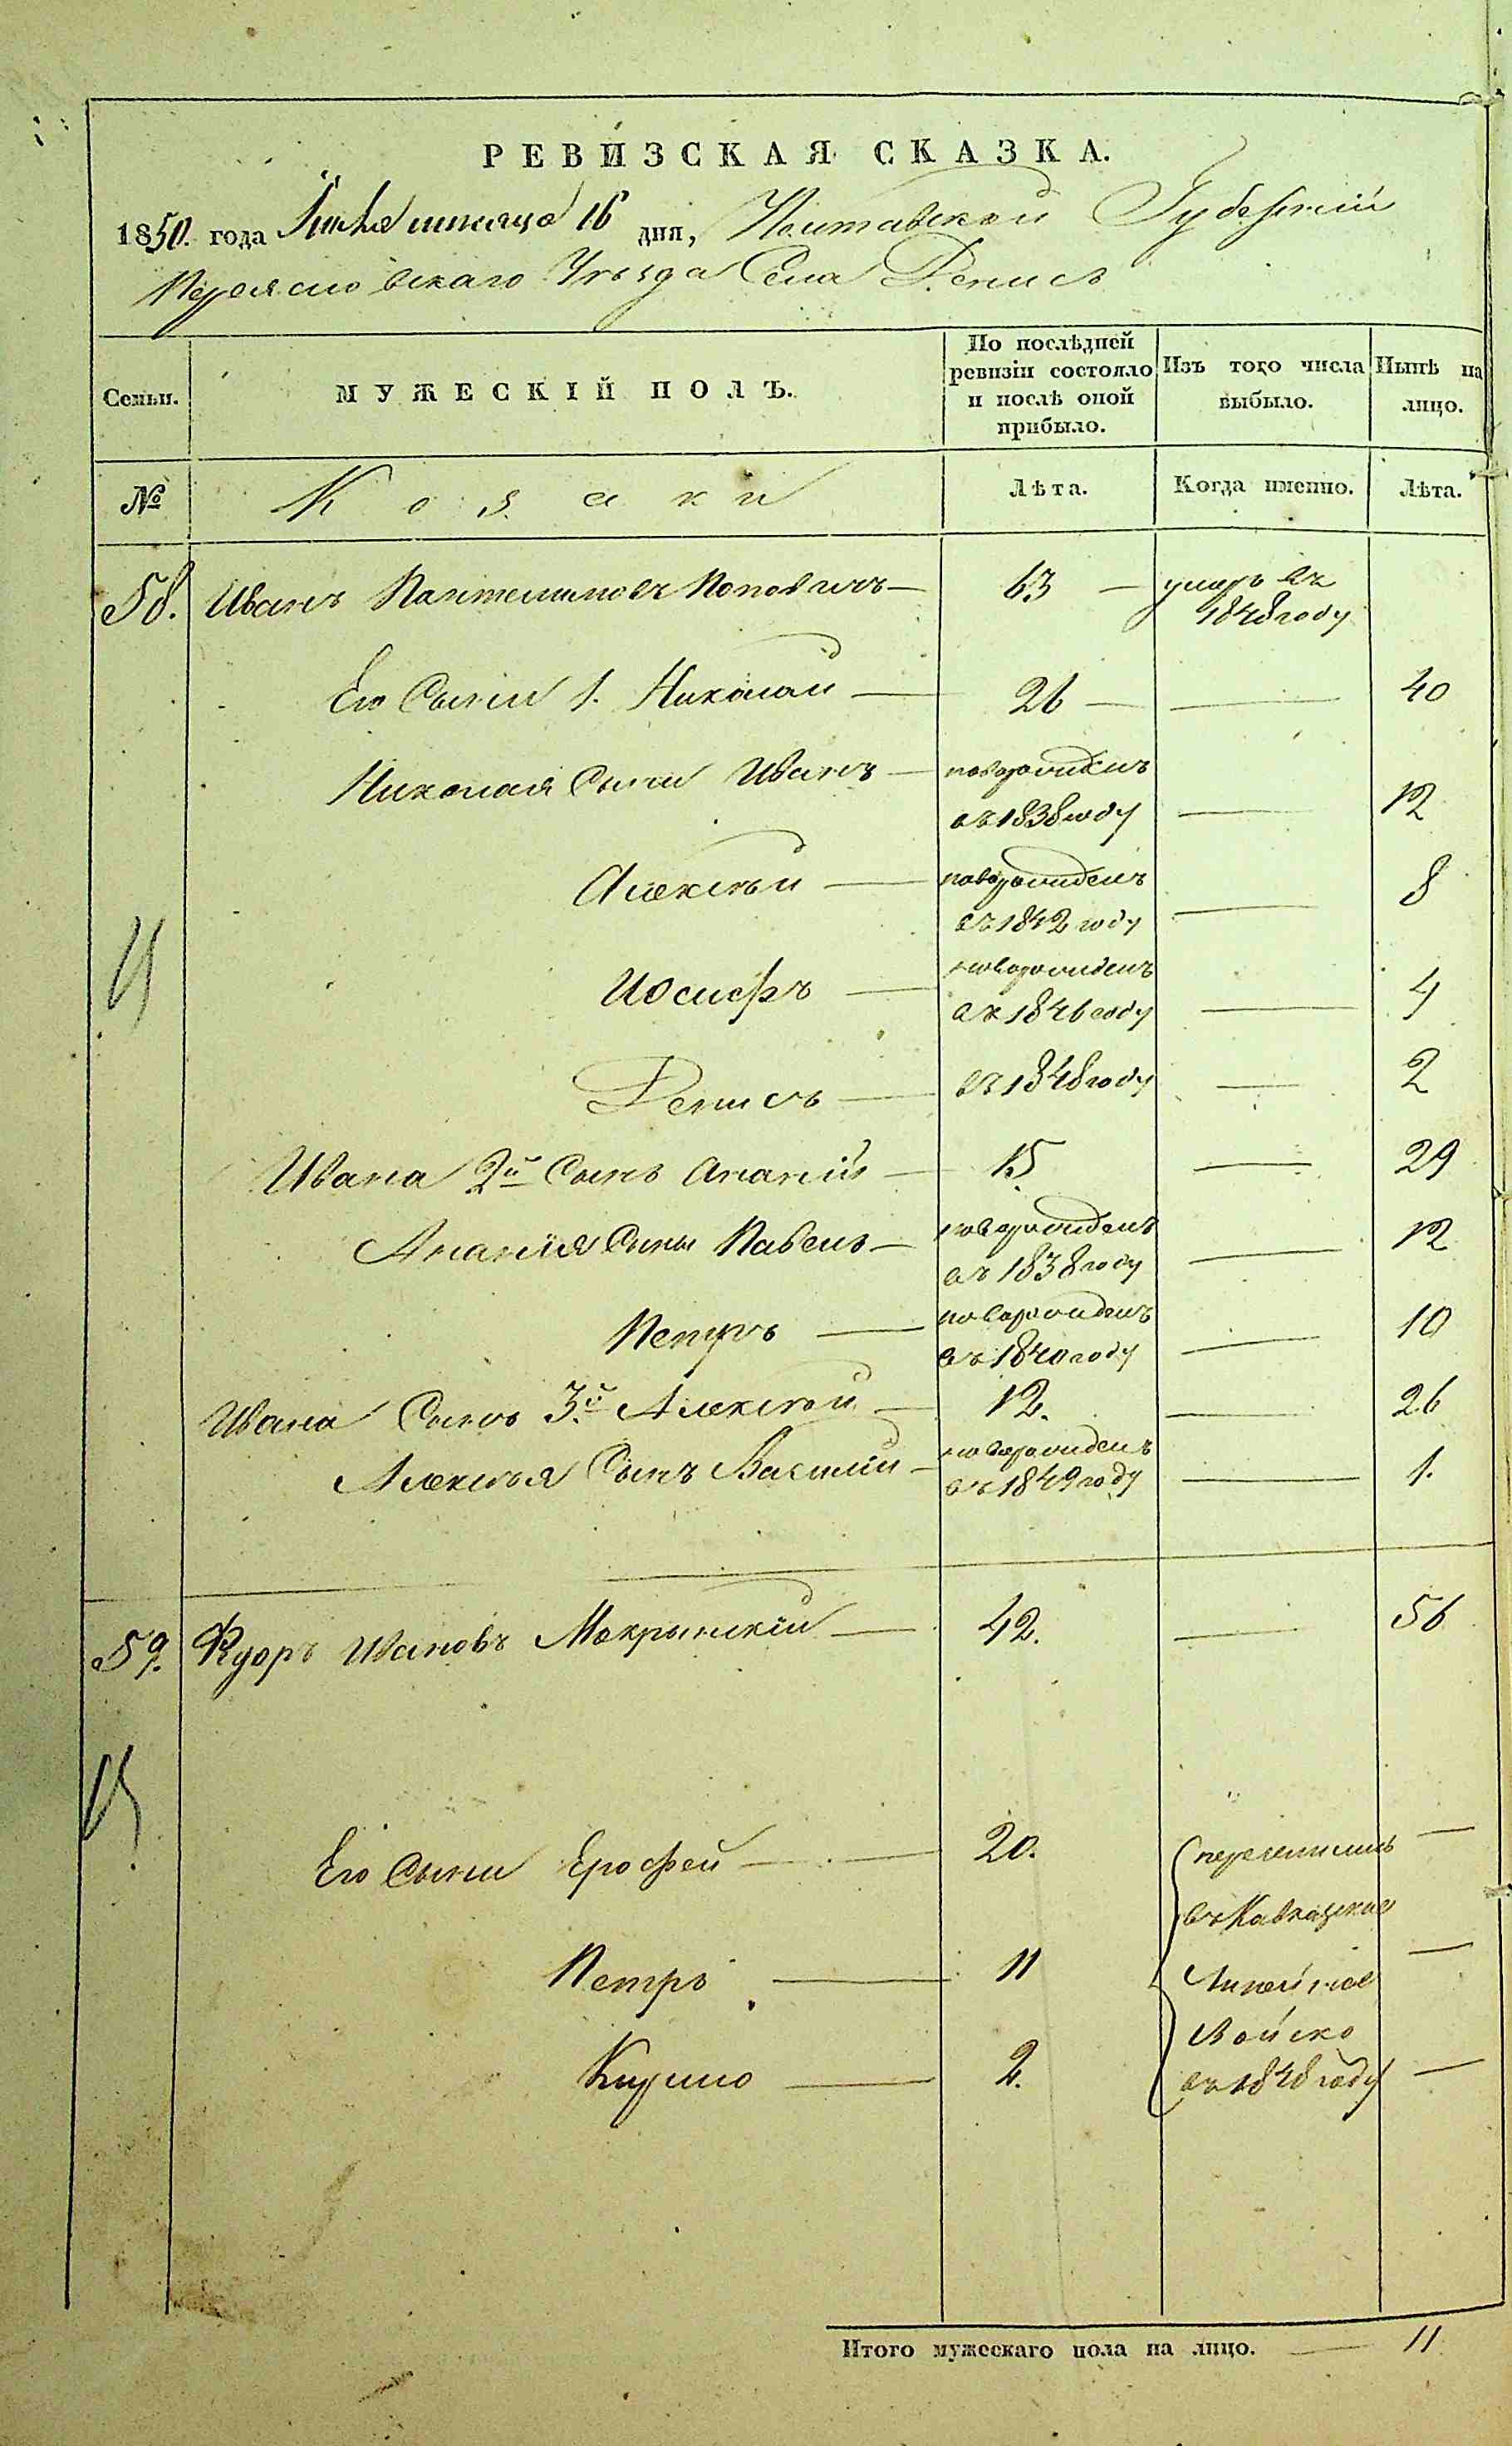 РЕВИЗСКАЯ СКАЗКА.
1850. года мѣсяца 16 дня, Полтавской Губерніи
Переяславскаго Уѣзда Села Денисъ
Семьи. МУЖЕСКІЙ ПОЛЪ. По послѣдней ревизіи состояло и послѣ оной прибыло. Изъ того числа выбыло. Нынѣ на лицо.
№ Козаки Лѣта. Когда именно. Лѣта.
58. Иванъ Пантелимовъ Поповичъ — 63 — умеръ въ
1848 году
Его Сыни 1. Николай — 26 — — 40
Николая Сыни Иванъ — новорожденъ
въ 1838 году — 12
Алексѣй — новорожденъ
въ 1842 году — 8
Иосифъ — новорожденъ
въ 1846 году — 4
Денисъ — въ 1848 году — 2
Ивана 2й Сынъ Ананій — 15 — 29
Ананія Сыны Павелъ — новорожденъ
въ 1838 году — 12
Петръ — новорожденъ
въ 1840 году — 10
Ивана Сынъ 3.й Алексѣй — 12. — 26
Алексѣя Сынъ Василій — новорожденъ
въ 1849 году — 1.
59. Федоръ Ивановъ Мокрынскій — 42. — 56
Его Сыни Ерофей — 20. переселились —
въ Кавказское
Петръ — 11 Линейное —
Войско
Кирило — 2. въ 1848 году —
Итого мужескаго пола на лицо. — 11